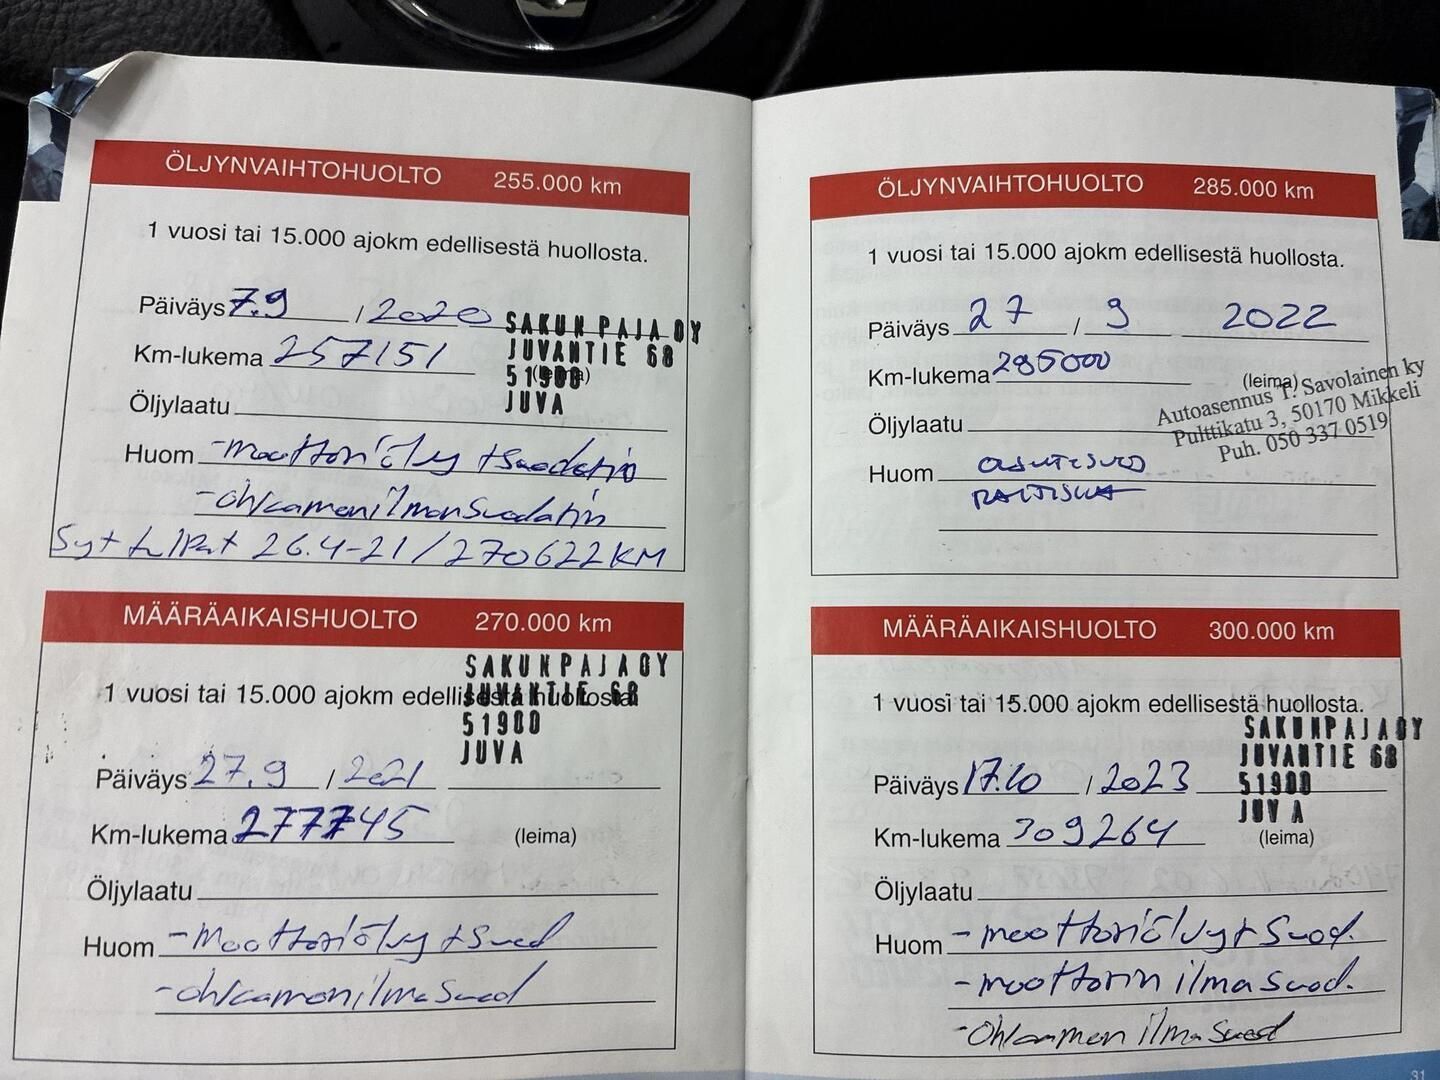 ÖLJYNVAIHTOHUOLTO 255.000 km
1 vuosi tai 15.000 ajokm edellisestä huollosta.
Päiväys 7.9 / 2020
SAKUN PAJA OY
JUVANTIE 68
51900
JUVA
(leima)
Km-lukema 257151
Öljylaatu
Huom - moottoriöljy + suodatin
- ohjaamon ilmansuodatin
26.4-21 / 270622 KM
MÄÄRÄAIKAISHUOLTO 270.000 km
1 vuosi tai 15.000 ajokm edellisestä huollosta.
SAKUN PAJA OY
JUVANTIE 68
51900
JUVA
Päiväys 27.9 / 2021
Km-lukema 277745 (leima)
Öljylaatu
Huom - moottoriöljyt + suod
- ohjaamon ilmasuod
ÖLJYNVAIHTOHUOLTO 285.000 km
1 vuosi tai 15.000 ajokm edellisestä huollosta.
Päiväys 27 / 9 2022
Km-lukema 295000 (leima)
Autoasennus T. Savolainen ky
Pulttikatu 3, 50170 Mikkeli
Puh. 050 337 0519
Öljylaatu
Huom
MÄÄRÄAIKAISHUOLTO 300.000 km
1 vuosi tai 15.000 ajokm edellisestä huollosta.
SAKUN PAJA OY
JUVANTIE 68
51900
JUVA
Päiväys 17.10 / 2023
Km-lukema 309264 (leima)
Öljylaatu
Huom - moottoriöljyt + suod.
- moottorin ilmasuod.
- ohjaamon ilmasuod
31